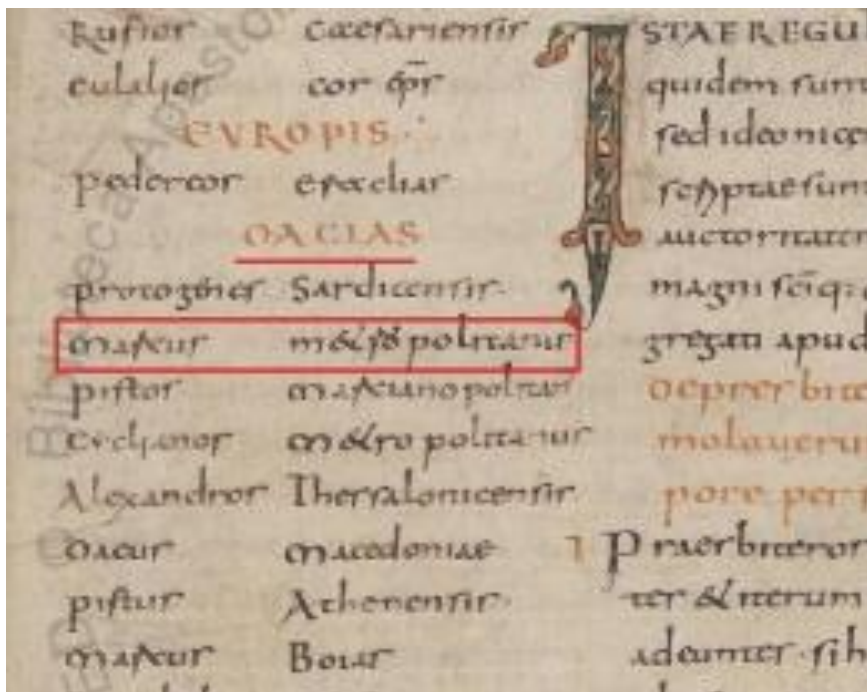 Rufios Caesariensis
eulalios cor ep̄s
EVROPIS
pedercos
DACIAS
protogenes Sardicensis
marcus m&ropolitanus
pistos marcianopolitas
m&ropolitanus
Alexandros Thessalonicensis
Dacus macedoniae
pistus Athenensis
marcus Boias
ISTAE REGU
quidem sunt
sed ideo nice
scriptae sunt
auctoritatem
magni sc̄iq:
gregati apud
De presbite
pore per
I Praesbiteros
ter & iterum